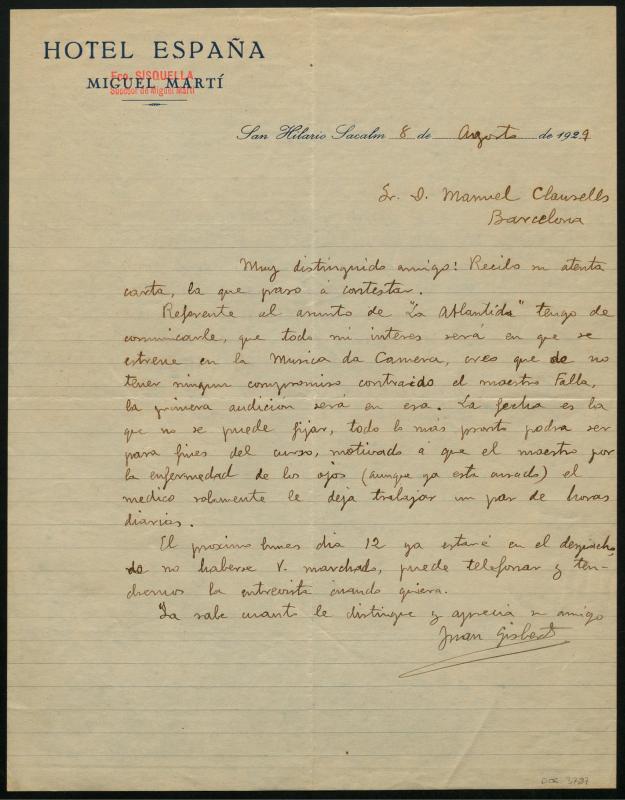 HOTEL ESPAÑA
MIGUEL MARTÍ
Fco. SISQUELLA
Sucesor de Miguel Martí
San Hilario Sacalm 8 de Agosto de 1929
Sr. D. Manuel Clausells
Barcelona
Muy distinguido amigo: Recibo su atenta
carta, la que paso á contestar.
Referente al asunto de "La Atlantida" tengo de
comunicarle, que todo mi interes será en que se
estrene en la Musica da Camera, creo que de no
tener ningun compromiso contraido el maestro Falla,
la primera audición será en esa. La fecha es la
que no se puede fijar, todo lo más pronto podra ser
para fines del curso, motivado á que el maestro por
la enfermedad de los ojos (aunque ya esta curado) el
medico solamente le deja trabajar un par de horas
diarias.
El proximo lunes dia 12 ya estaré en el despacho,
de no haberse V. marchado, puede telefonar y ten-
dremos la entrevista cuando quiera.
Ya sabe cuanto le distingue y aprecia su amigo
Juan Gisbert
DOC 3727